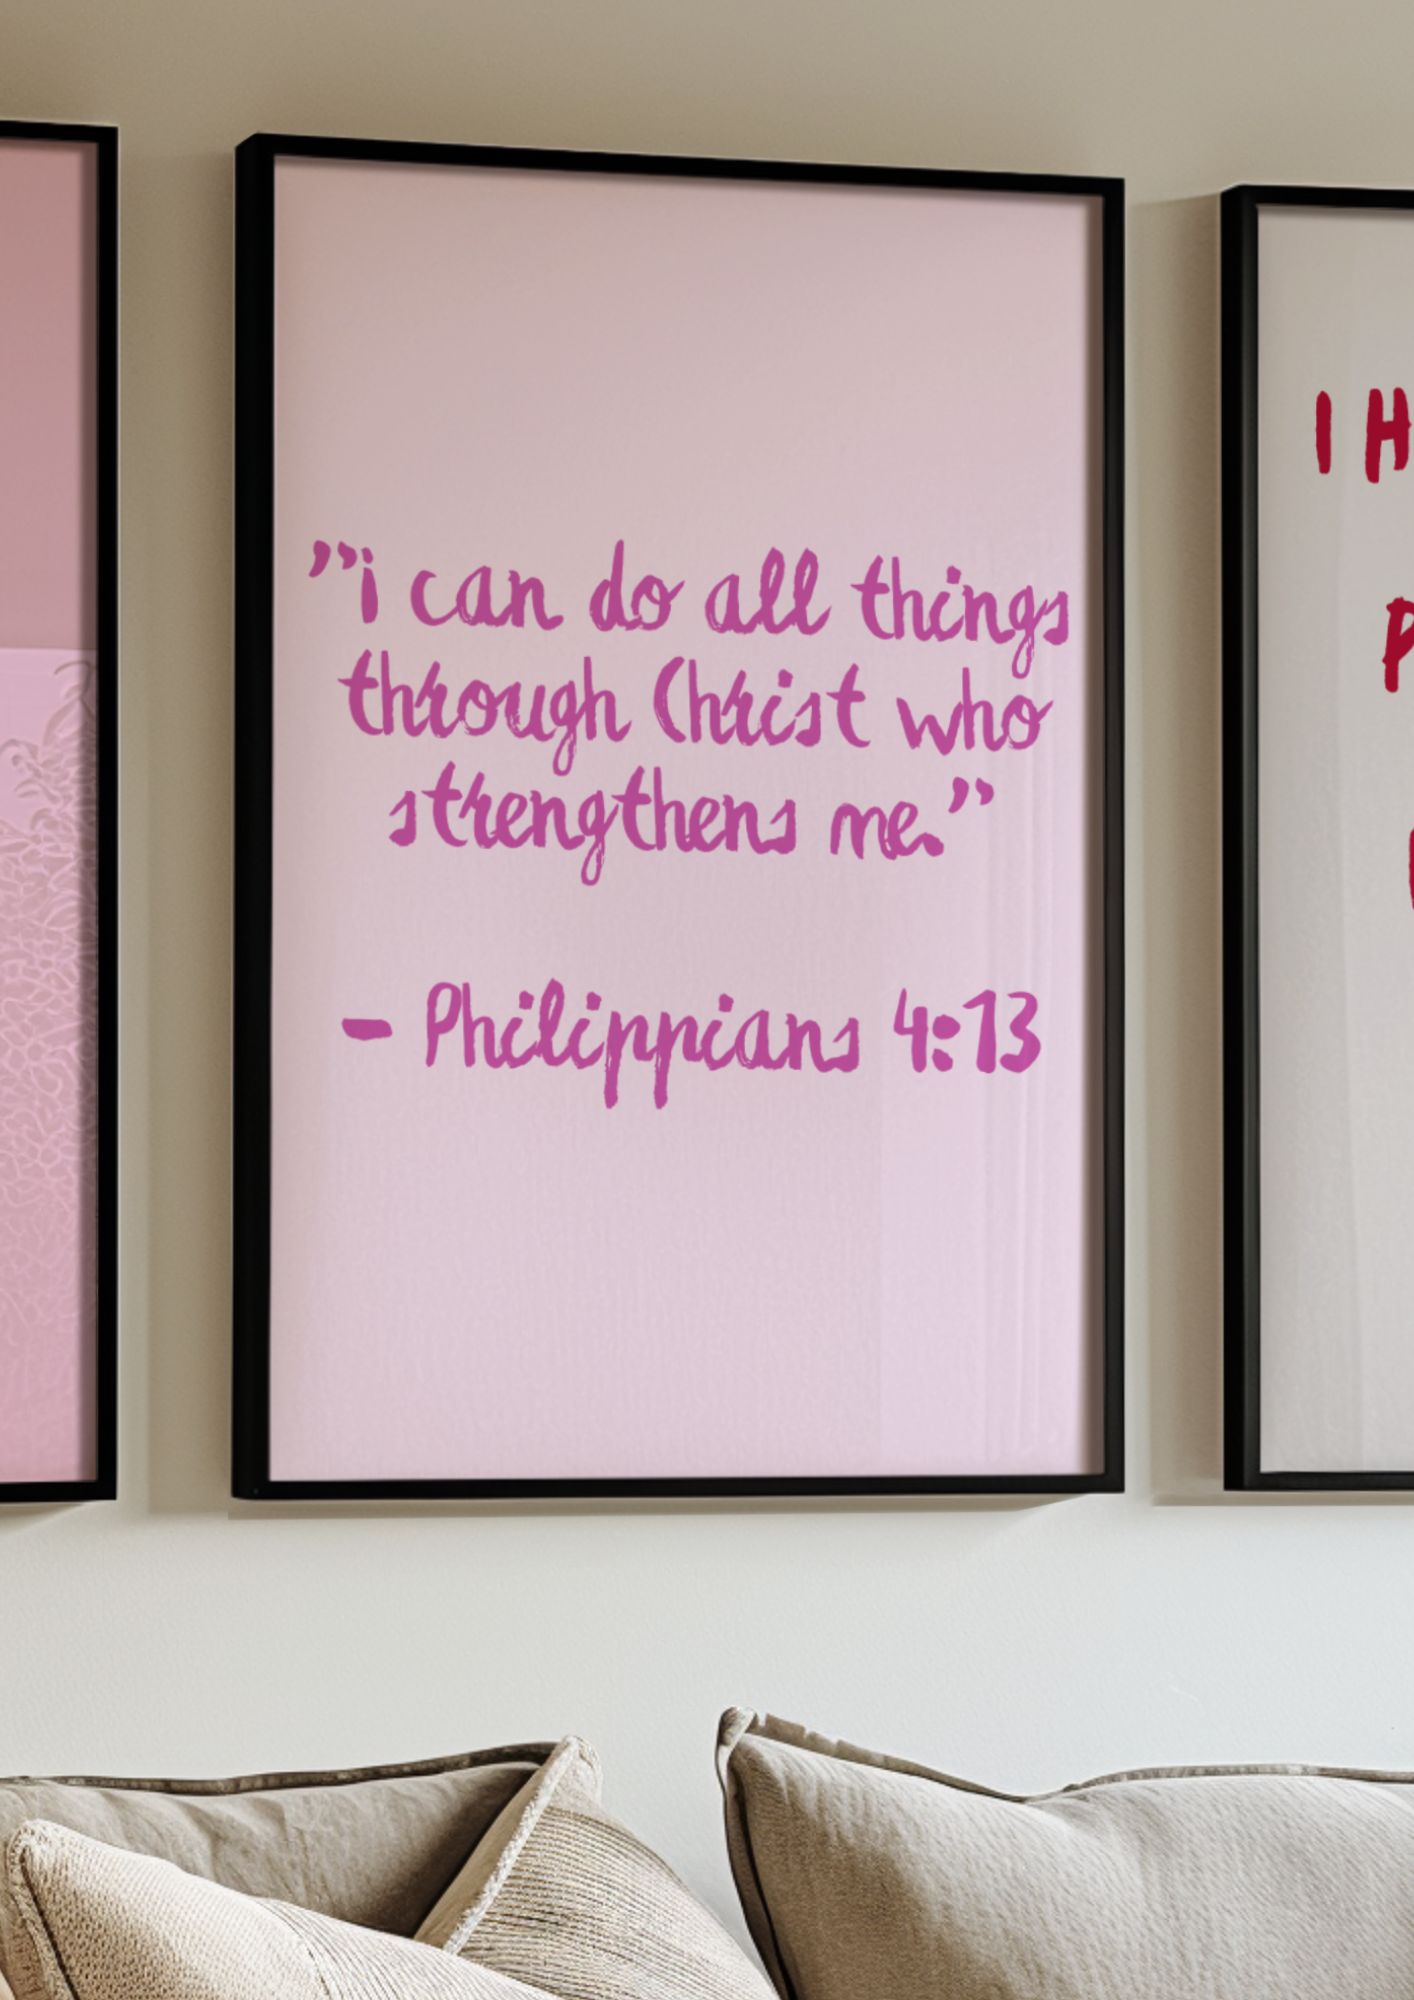 ”i can do all things
through Christ who
strengthens me.”
- Philippians 4:13
I H
P